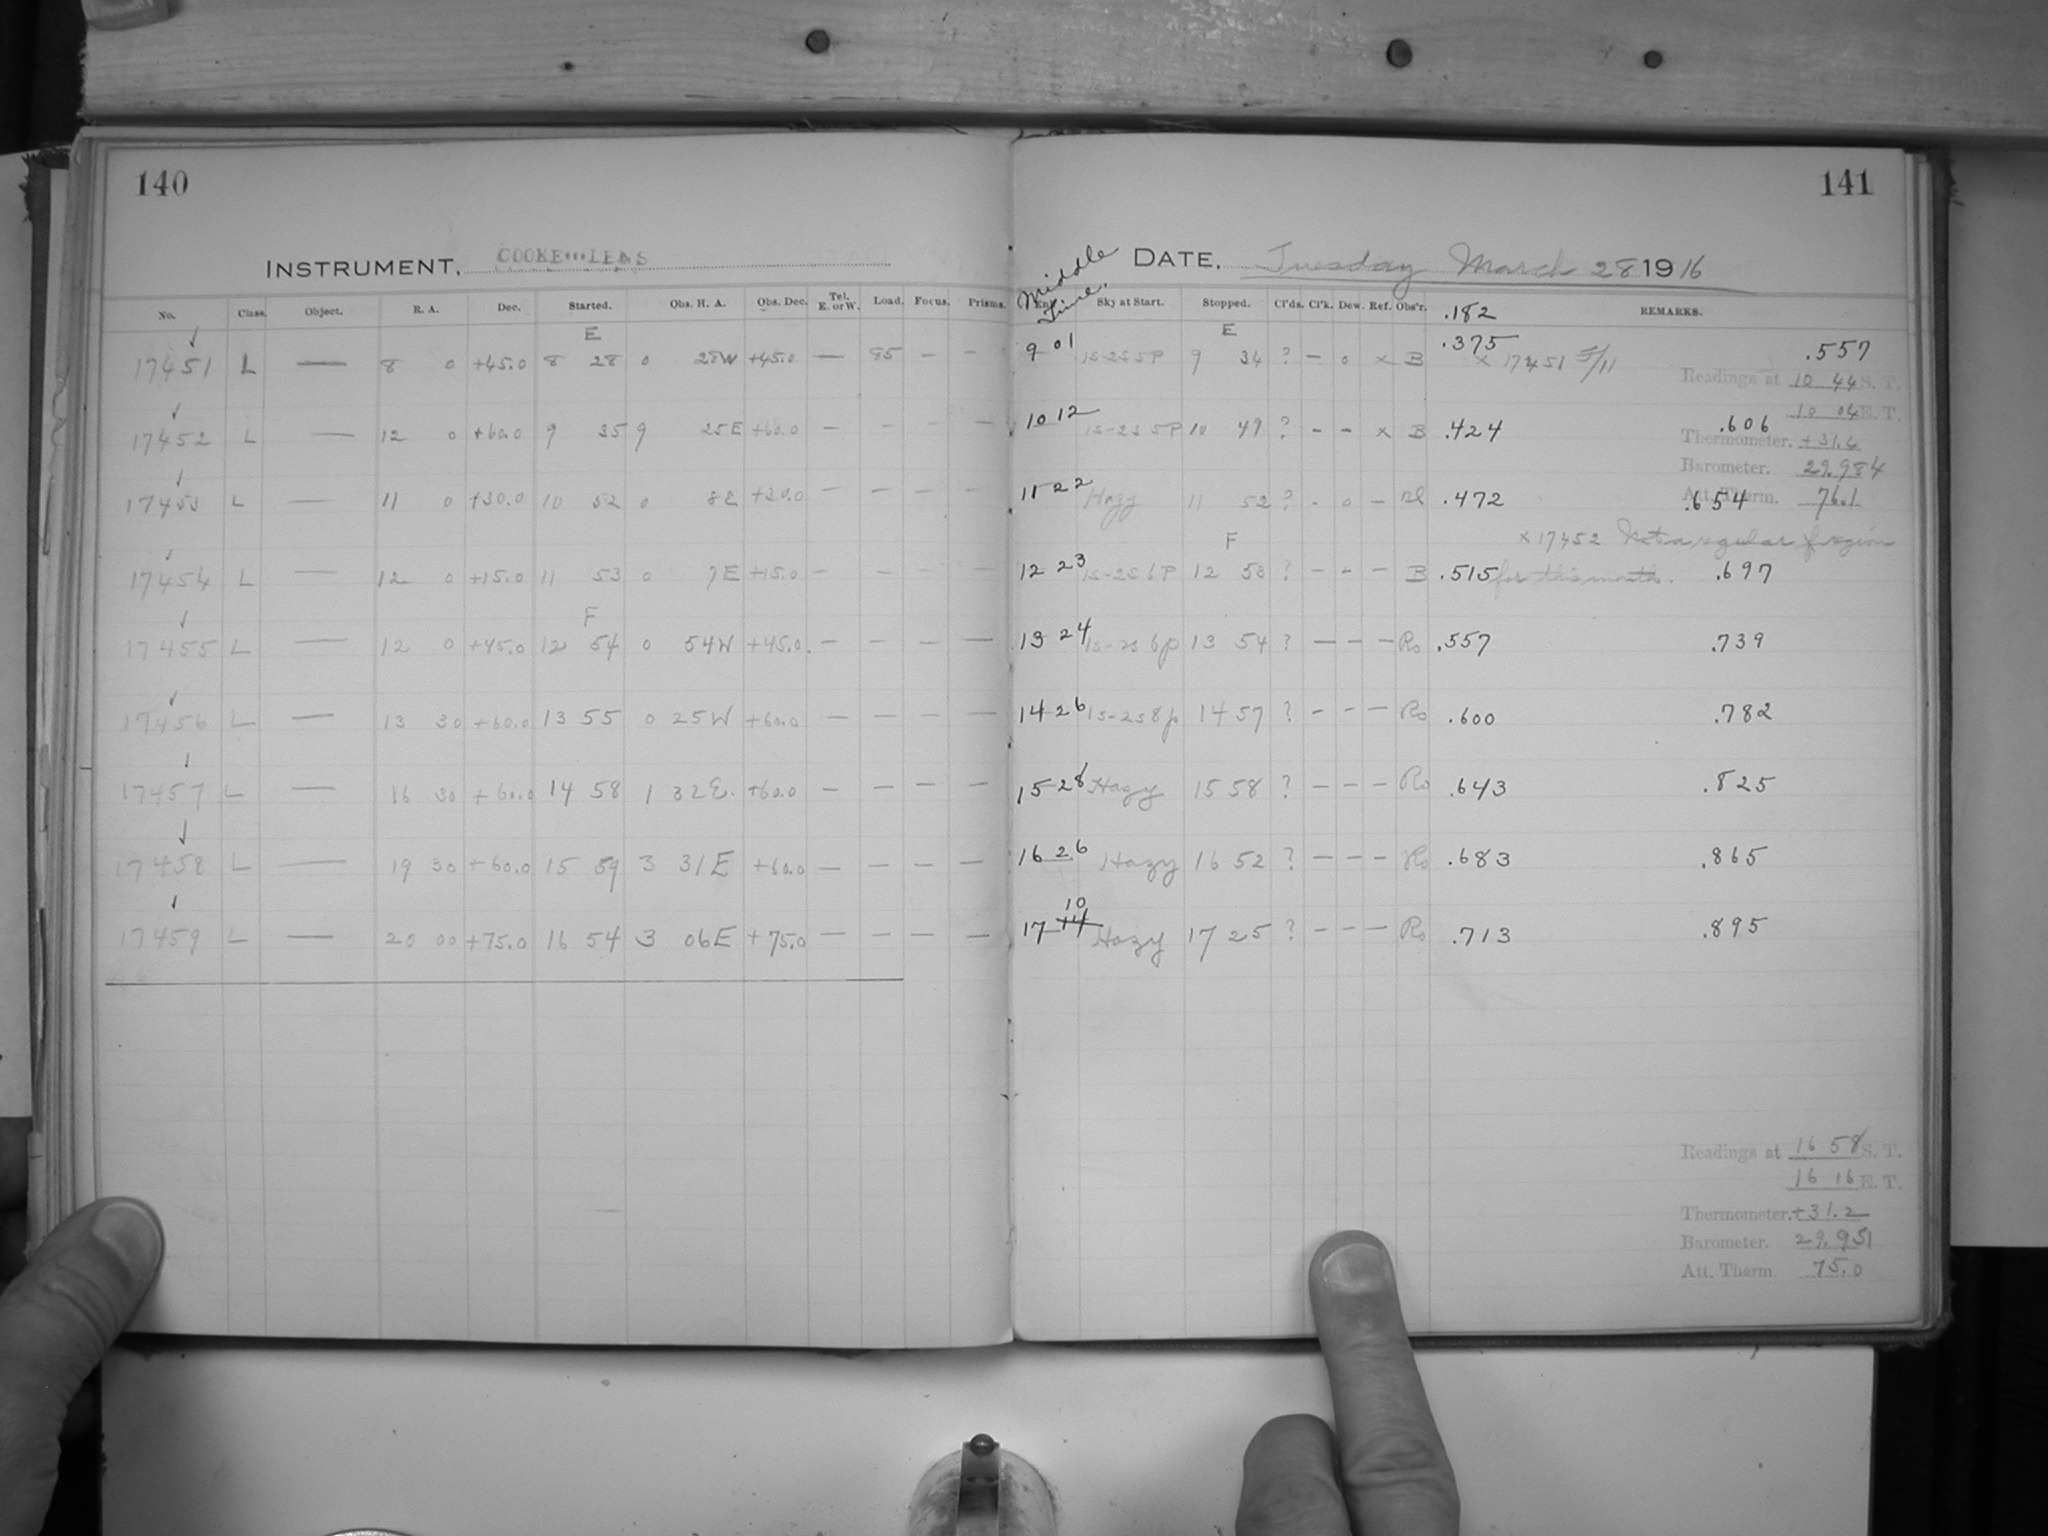 140
INSTRUMENT, COOKE LENS
No. Class. Object. R. A. Dec. Started. Obs. H. A. Obs. Dec. Tel. E. or W. Load. Focus. Prisms.
E
17451 L — 8 0 +45.0 8 28 0 28W +45.0 — 85 — —
17452 L — 12 0 +60.0 9 35 9 25E +60.0 — — — —
17453 L — 11 0 +30.0 10 52 0 8E +30.0 — — — —
17454 L — 12 0 +15.0 11 53 0 7E +15.0 — — — —
F
17455 L — 12 0 +45.0 12 54 0 54W +45.0 — — — —
17456 L — 13 30 +60.0 13 55 0 25W +60.0 — — — —
17457 L — 16 30 +60.0 14 58 1 32E +60.0 — — — —
17458 L — 19 30 +60.0 15 59 3 31E +60.0 — — — —
17459 L — 20 00 +75.0 16 54 3 06E +75.0 — — — —
141
Middle Time.
DATE, Tuesday March 28 1916
Sky at Start. Stopped. Cl'ds. Cl'k. Dew. Ref. Obs'r. .182 REMARKS.
E
9 01 1s-2s 5P 9 34 ? — 0 x B .375 x 17451 5/11 .557
Readings at 10 44 S. T.
10 04 E. T.
10 12 1s-2s 5P 10 49 ? - - x B .424 .606
Thermometer. +31.4
Barometer. 29.984
11 22 Hazy 11 52 ? - 0 - .472 .654
Att. Therm. 76.1
x 17452 Not a regular region
F
12 23 1s-2s 6P 12 53 ? - - - B .515 for this month. .697
13 24 1s-2s 6p 13 54 ? — — — Ro .557 .739
14 26 1s-2s 8p 14 57 ? - - - Ro .600 .782
15 28 Hazy 15 58 ? - - - Ro .643 .825
16 26 Hazy 16 52 ? - - - Ro .683 .865
10
17 14 Hazy 17 25 ? - - - Ro .713 .895
Readings at 16 58 S. T.
16 16 E. T.
Thermometer. +31.2
Barometer. 29.951
Att. Therm. 75.0